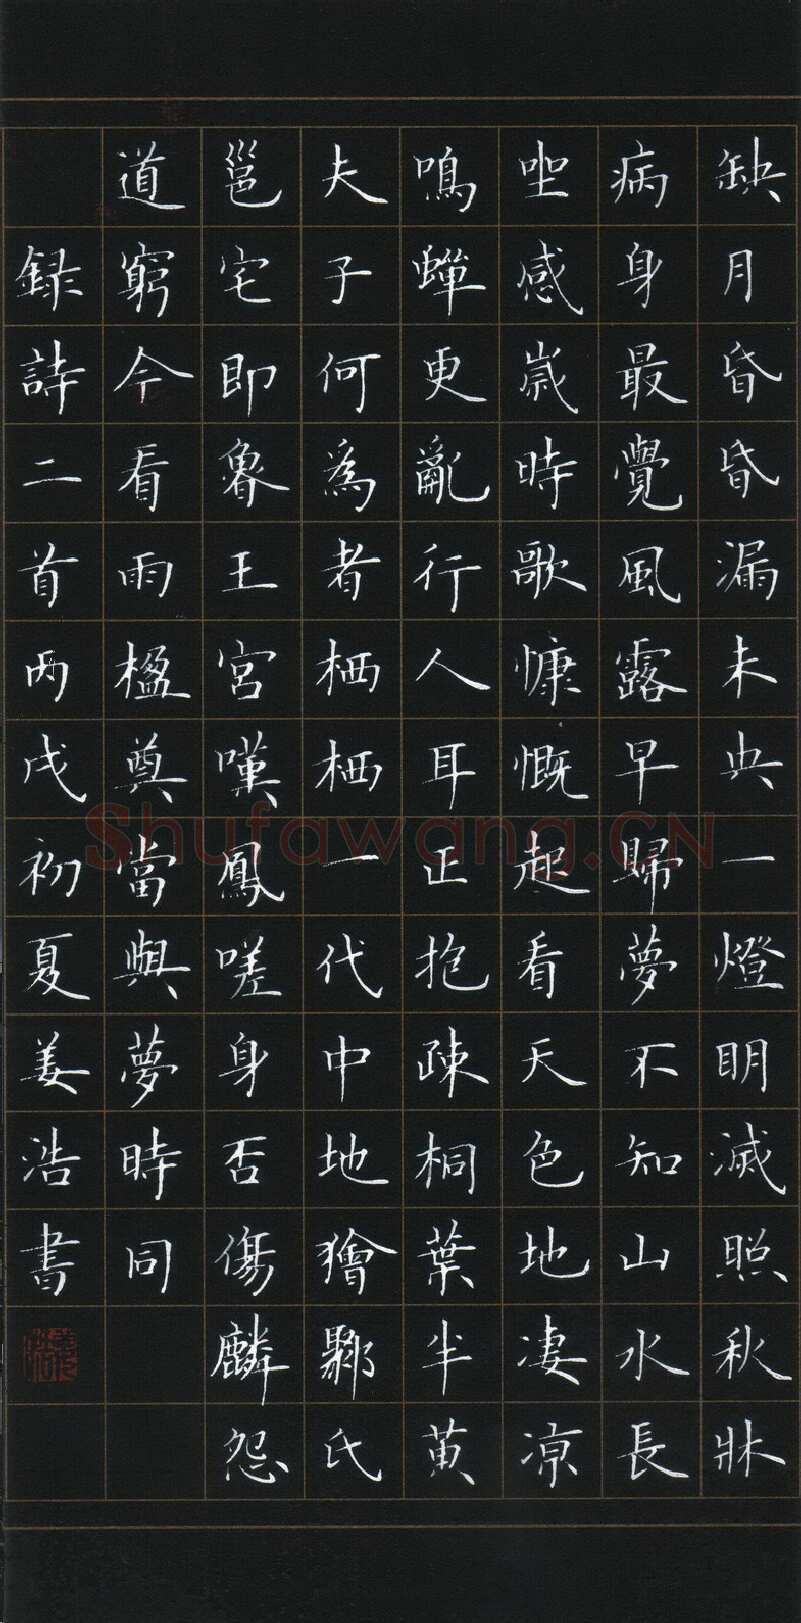 缺月昏昏漏未央一燈明滅照秋牀
病身最覺風露早歸夢不知山水長
坐感歲時歌慷慨起看天色地凄涼
鳴蟬更亂行人耳正抱疎桐葉半黃
夫子何為者栖栖一代中地猶鄹氏
邕宅即魯王宮嘆鳳嗟身否傷麟怨
道窮今看兩楹奠當與夢時同
録詩二首丙戌初夏姜浩書
Shufawang.CN